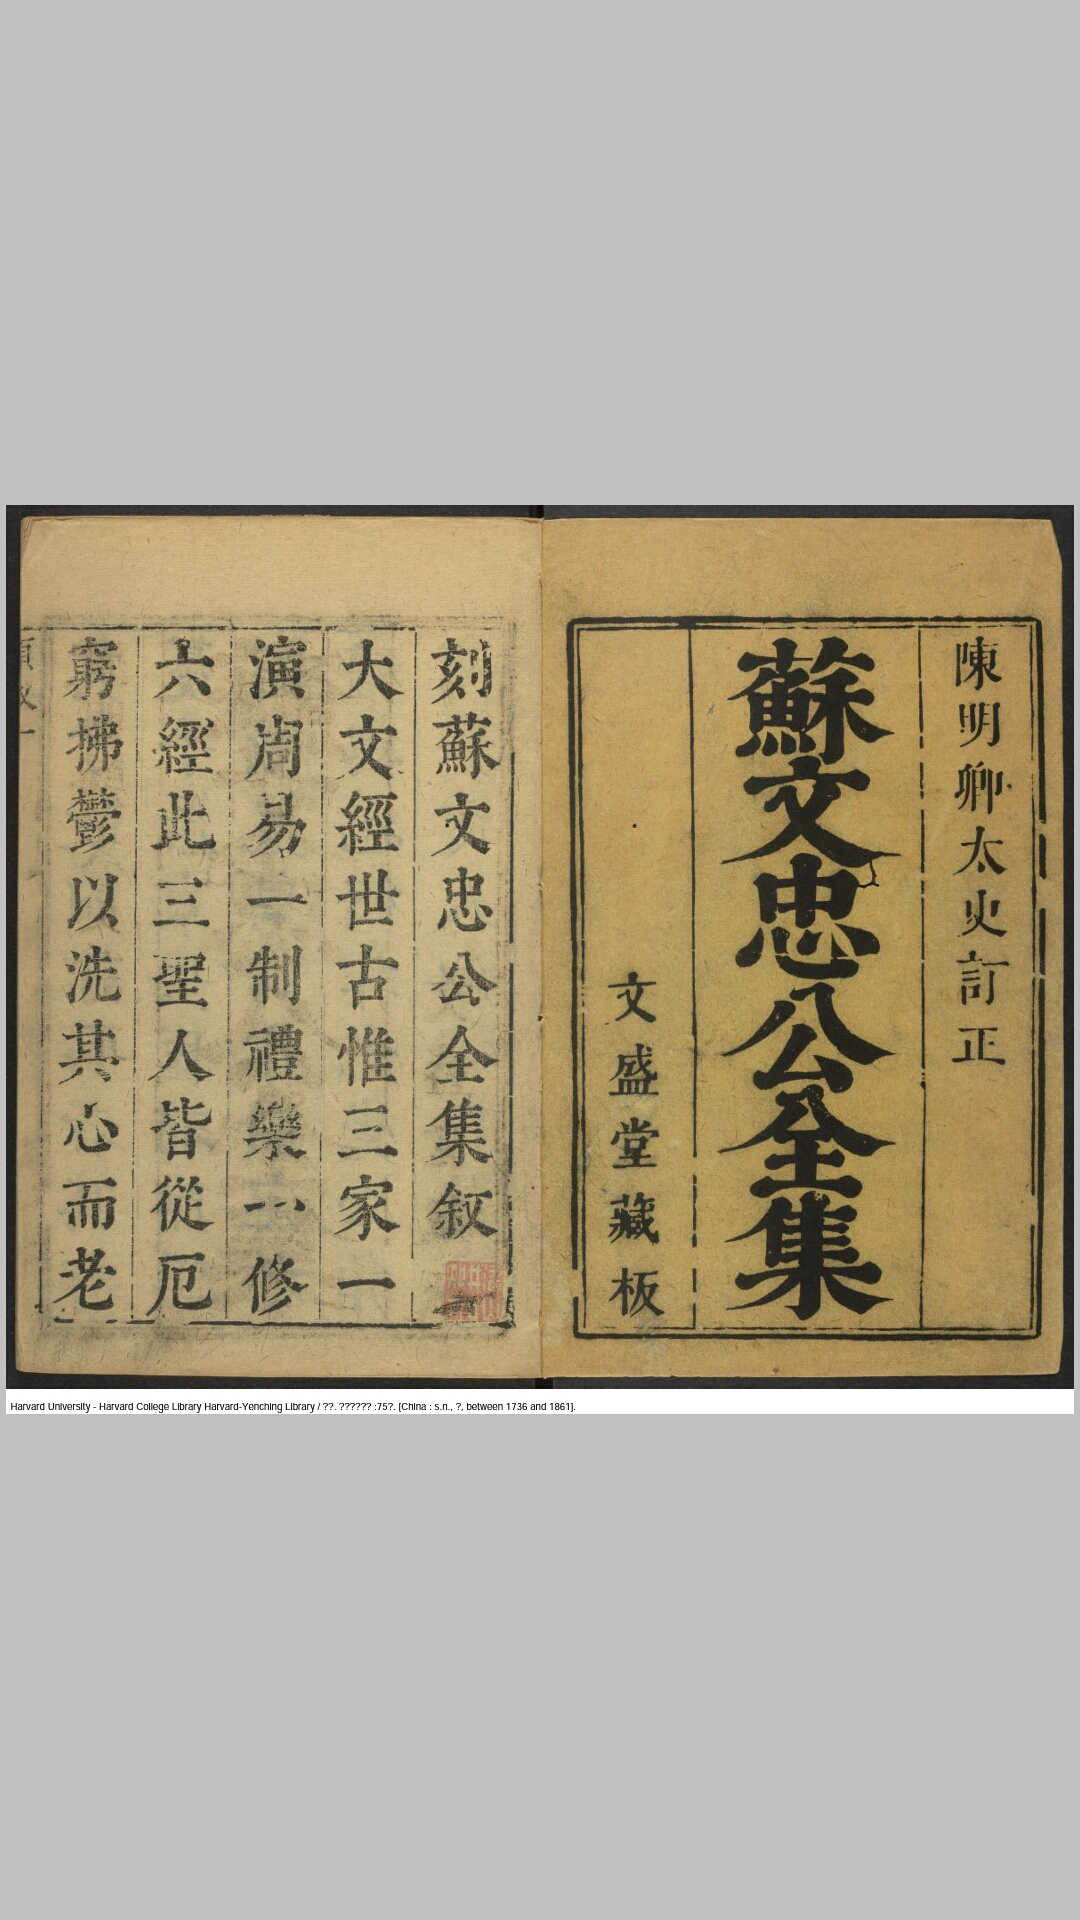 陳明卿太史訂正
蘇文忠公全集
文盛堂藏板
刻蘇文忠公全集叙
大文經世古惟三家一
演周易一制禮樂一修
六經此三聖人皆從厄
窮拂鬱以洗其心而老
Harvard University - Harvard College Library Harvard-Yenching Library / ??. ?????? :75?. [China : s.n., ?, between 1736 and 1861].